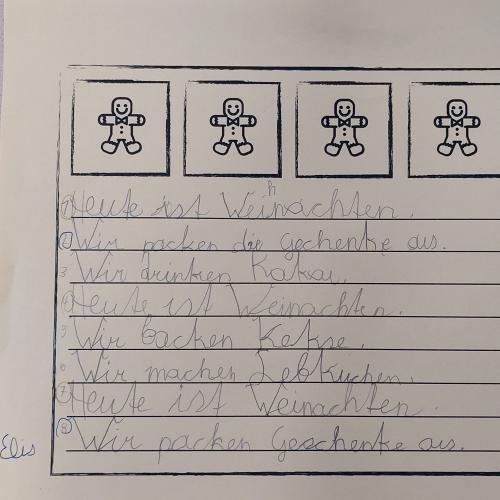 ① Heute ist Weihnachten.
② Wir packen die Gechenke aus.
3 Wir drinken Kakau.
④ Heute ist Weinachten.
5 Wir backen Kekse.
6 Wir machen Lebkuchen.
⑦ Heute ist Weinachten.
⑧ Wir packen Geschenke aus.
Elis